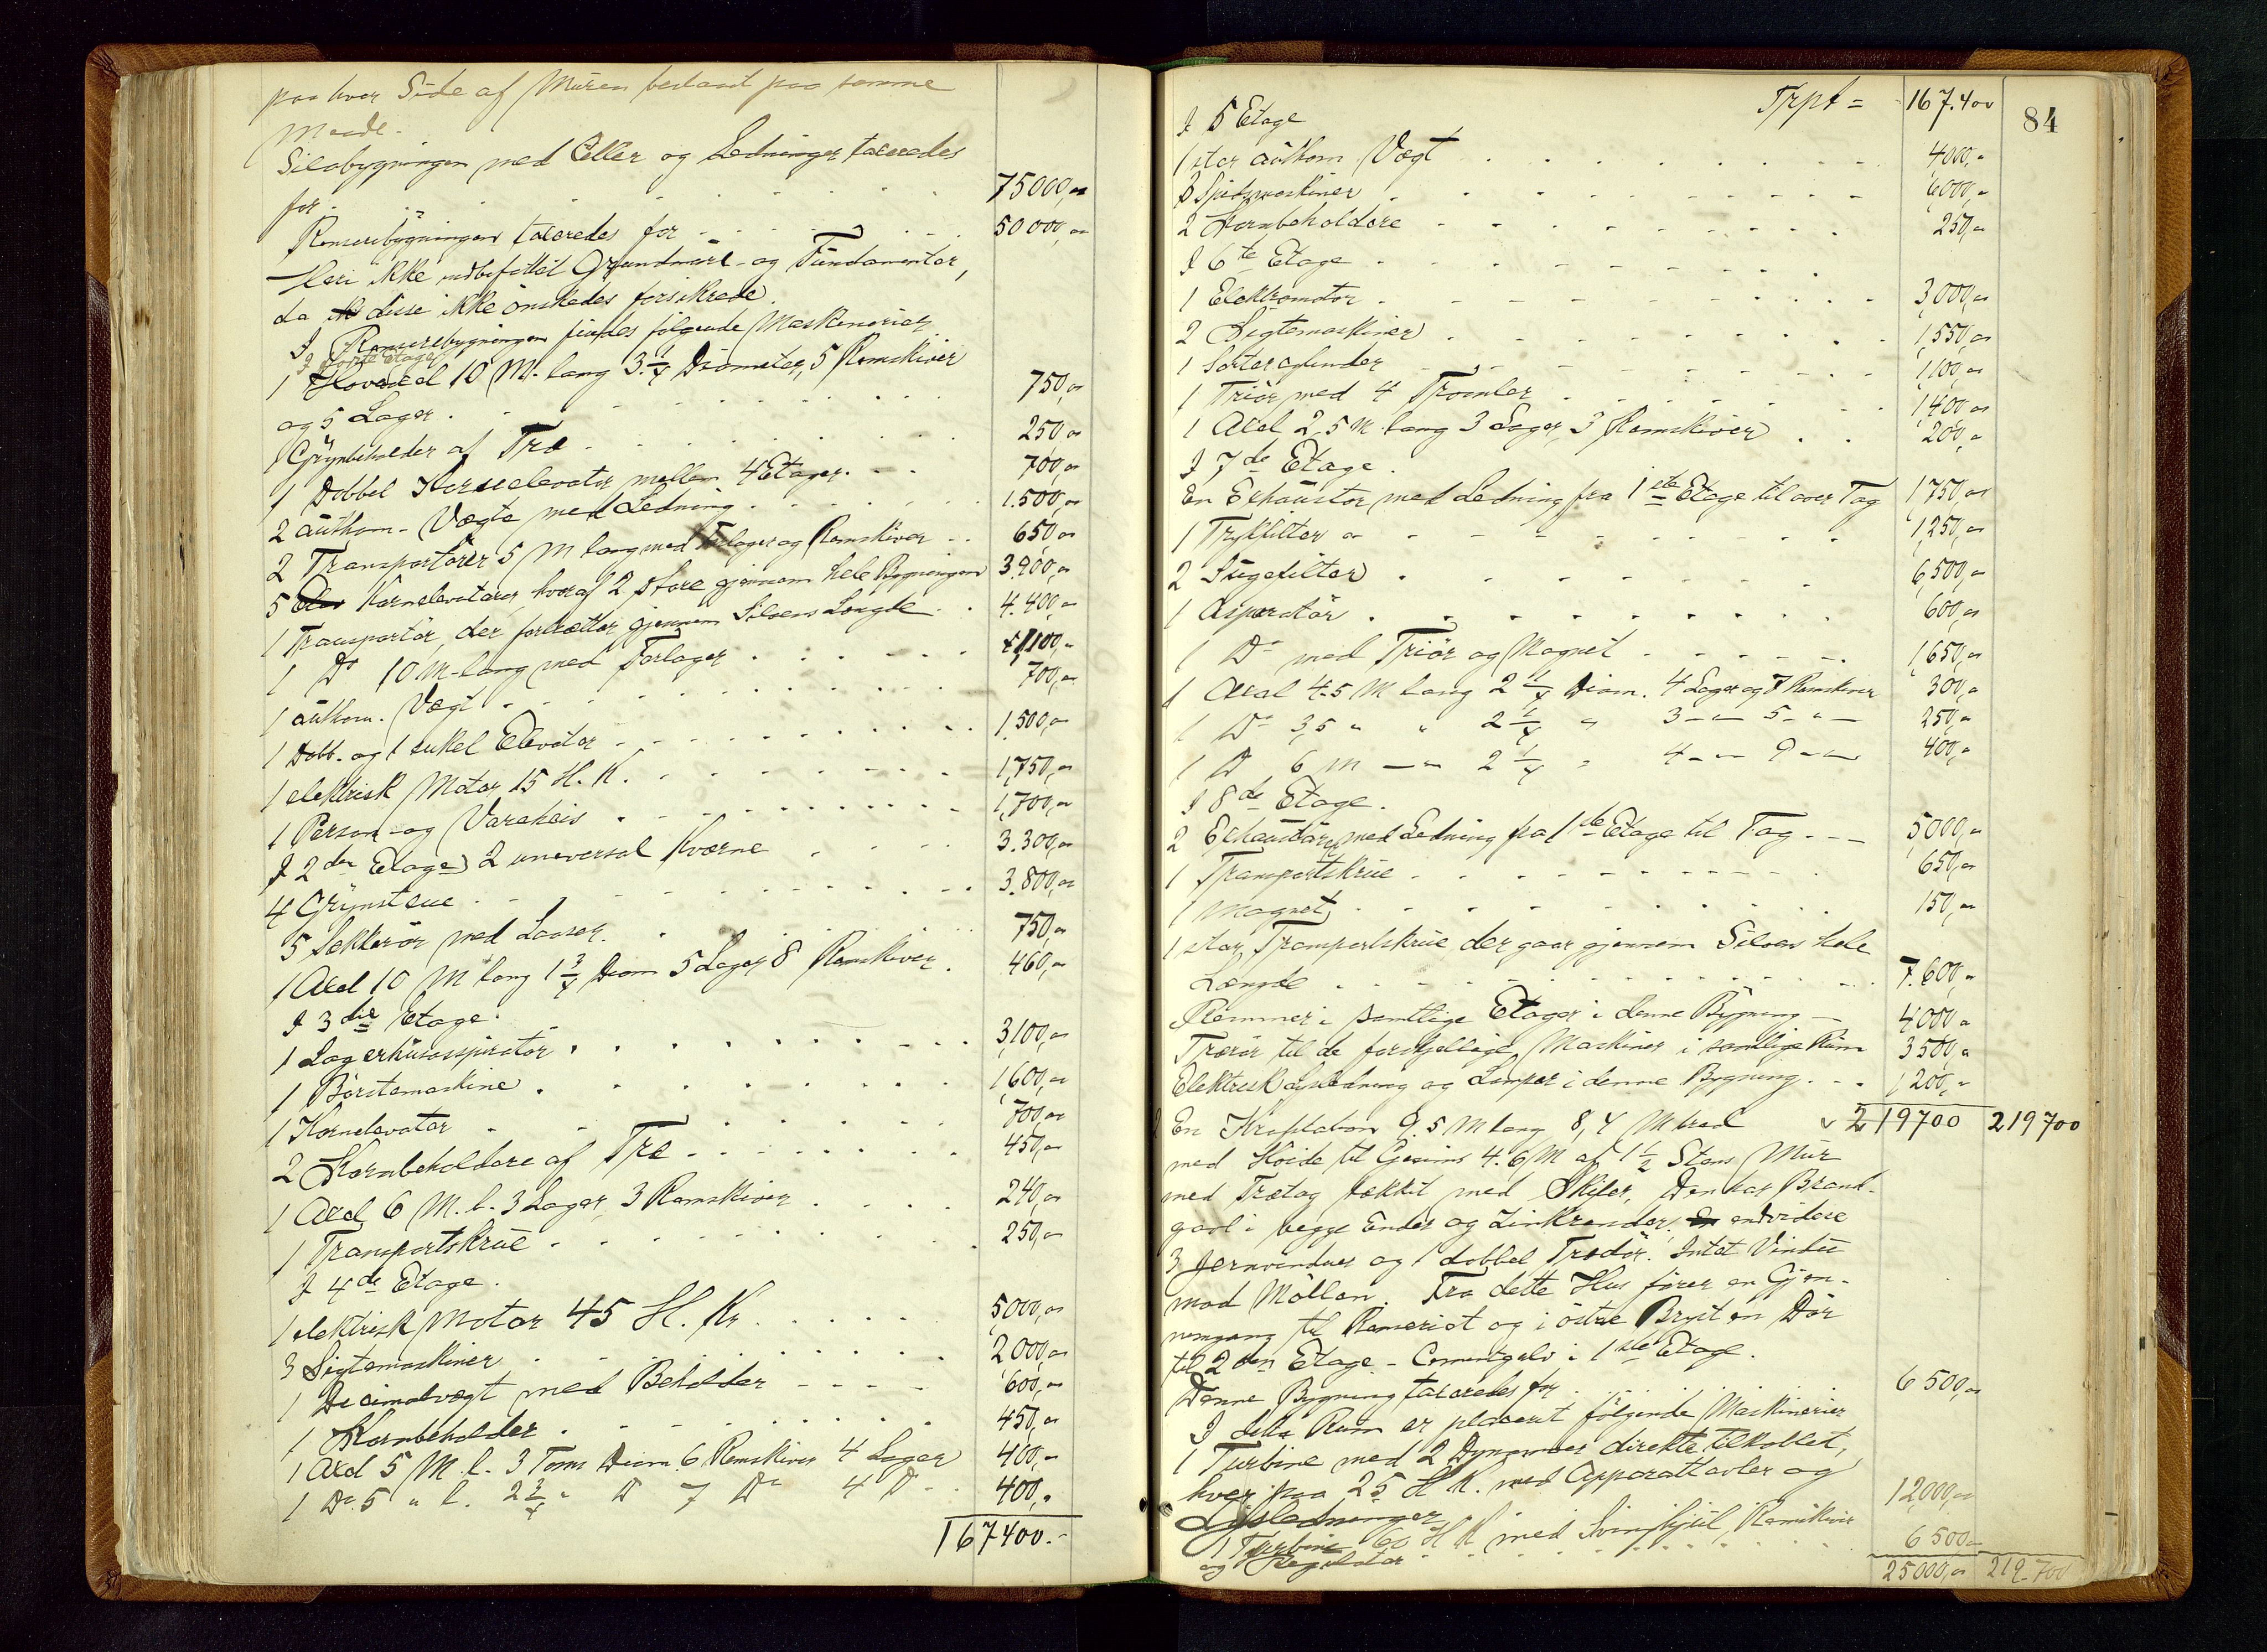 paa hver Side af Muren bestaaet paa samme
Maade.
Silobygningen med Celler og Ledninger taxeredes
for 75000,00
Renseribygningen taxeredes for 50000,00
Heri ikke indbefattet Grundmure og Fundamenter,
da disse ikke önskedes forsikrede.
I Renseribygningen findes fölgende Maskinerier
I förste Etage
1 Hovedaxel 10 M. lang 3 1/4 Diameter, 5 Remskiver
og 5 Lager. 750,00
1 Grynbeholder af Træ 250,00
1 Dobbel Kornelevator mellem 4 Etager 700,00
2 authom. Vægte med Ledning 1.500,00
2 Transportörer 5 M lang med Forlager og Remskiver 650,00
5 Kornelevatorer hvoraf 2 store gjennem hele Bygningen 3900,00
1 Transportör, der fortsætter gjennem Siloens Længde 4.400,00
1 Do 10 M lang med Forlager 1,100,00
1 authom. Vægt 700,00
1 Dobb. og 1 enkel Elevator 1.500,00
1 elektrisk Motor 15 H.K. 1,750,00
1 Person- og Vareheis 1,700,00
I 2den Etage 2 universal Kværne 3.300,00
4 Grynstene 3.800,00
5 Sækkerör med Laaser 750,00
1 Axel 10 M lang 1 3/4 Diam 5 Lager 8 Remskiver 460,00
I 3die Etage.
1 Lagerhusaspiratör 3,100,00
1 Börstemaskine 1,600,00
1 Kornelevator 700,00
2 Kornbeholdere af Træ 450,00
1 Axel 6 M. l. 3 Lager 3 Remskiver 240,00
1 Transportskrue 250,00
I 4de Etage.
1 elektrisk Motor 45 H. Kr. 5000,00
3 Sigtemaskiner 2000,00
1 Decimalvægt med Beholder 600,00
1 Kornbeholder 450,00
1 Axel 5 M. l. 3 Toms Diam 6 Remskiver 4 Lager 400,00
1 Do 5 " l. 2 3/4 " D 7 Do 4 D 400,00
167400.-
84
Trpt = 167.400
I 5 Etage
1 stor authom Vægt 4000,00
3 Spidsmaskiner 6000,00
2 Kornbeholdere 250,00
I 6te Etage
1 Elektromotor 3,000,00
2 Sigtemaskiner 1,550,00
1 Sortercylinder 1100,00
1 Triör med 4 Tromler 1400,00
1 Axel 2,5 M lang 3 Lager, 3 Remskiver 200,00
I 7de Etage.
En Exhaustor med Ledning fra 1ste Etage til over Tag 1750,00
1 Trykfilter 1,250,00
2 Sugefilter 6,500,00
1 Aspiratör 600,00
1 Do med Triör og Magnet 1,650,00
1 Axel 4.5 M lang 2 1/4 Diam. 4 Lager og 7 Remskiver 300,00
1 Do 3,5 " " 2 1/4 " 3 -"- 5 -"- 250,00
1 D 6 M -"- 2 1/4 " 4 -"- 9 -"- 400,00
I 8de Etage.
2 Exhaustorer med Ledning fra 1ste Etage til Tag 5,000,00
1 Transportskrue 650,00
1 Magnet 150,00
1 stor Transportskrue der gaar gjennem Siloens hele
Længde 7.600,00
Remmer i samtlige Etager i denne Bygning 4000,00
Trærör til de forskjellige Maskiner i samtlige Rum 3500,00
Elektrisk Lysledning og Lamper i denne Bygning 1,200,00
En Kraftstation 9.5 M lang 8,4 M bred 219700 219700
med Höide til Gesims 4.6 M af 1 1/2 Stens Mur
med Trætag tækket med Skifer. Den har Brand-
gavl i begge Ender og Zinkrender, endvidere
3 Jernvinduer og 1 dobbel Trædör. Intet Vindu
mod Möllen. Fra dette Hus förer en Gjen-
nemgang til Renseriet og i östre Bryst en Dör
til 2den Etage - Cementgulv i 1ste Etage.
Denne Bygning taxeredes for 6500,00
I dette Rum er placeret fölgende Maskinerier
1 Turbine med 2 Dynamoer direkte tilkoblet,
hver paa 25 H K. med Apparattavler og
Lysledninger 12000,00
1 Turbine 60 H K med Svinghjul, Remskive
og Regulator 6500,00
25000,00 219.700